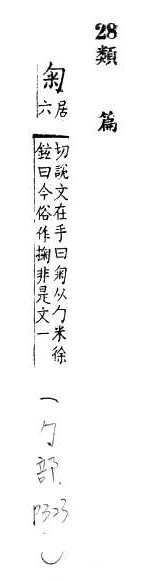 28類篇
匊居六切說文在手曰匊从勹米徐
鉉曰今俗作掬非是文一
(勹部 P323)